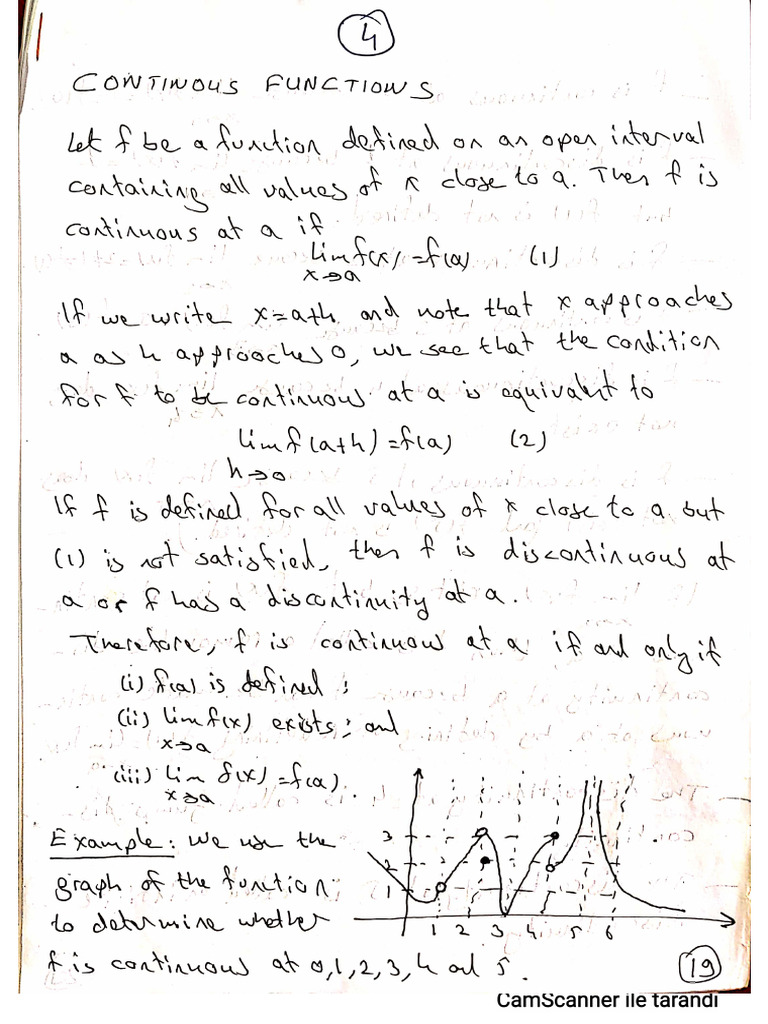 4
CONTINOUS FUNCTIONS
Let f be a function defined on an open interval
containing all values of x close to a. Then f is
continuous at a if
lim f(x) = f(a) (1)
x→a
If we write x=a+h and note that x approaches
a as h approaches 0, we see that the condition
for f to be continuous at a is equivalent to
lim f(a+h) = f(a) (2)
h→0
If f is defined for all values of x close to a but
(1) is not satisfied, then f is discontinuous at
a or f has a discontinuity at a.
Therefore, f is continuous at a if and only if
(i) f(a) is defined;
(ii) lim f(x) exists; and
x→a
(iii) lim f(x) = f(a).
x→a
Example: We use the
graph of the function
to determine whether
f is continuous at 0,1,2,3,4 and 5.
3
2
1
1 2 3 4 5 6
19
CamScanner ile tarandı